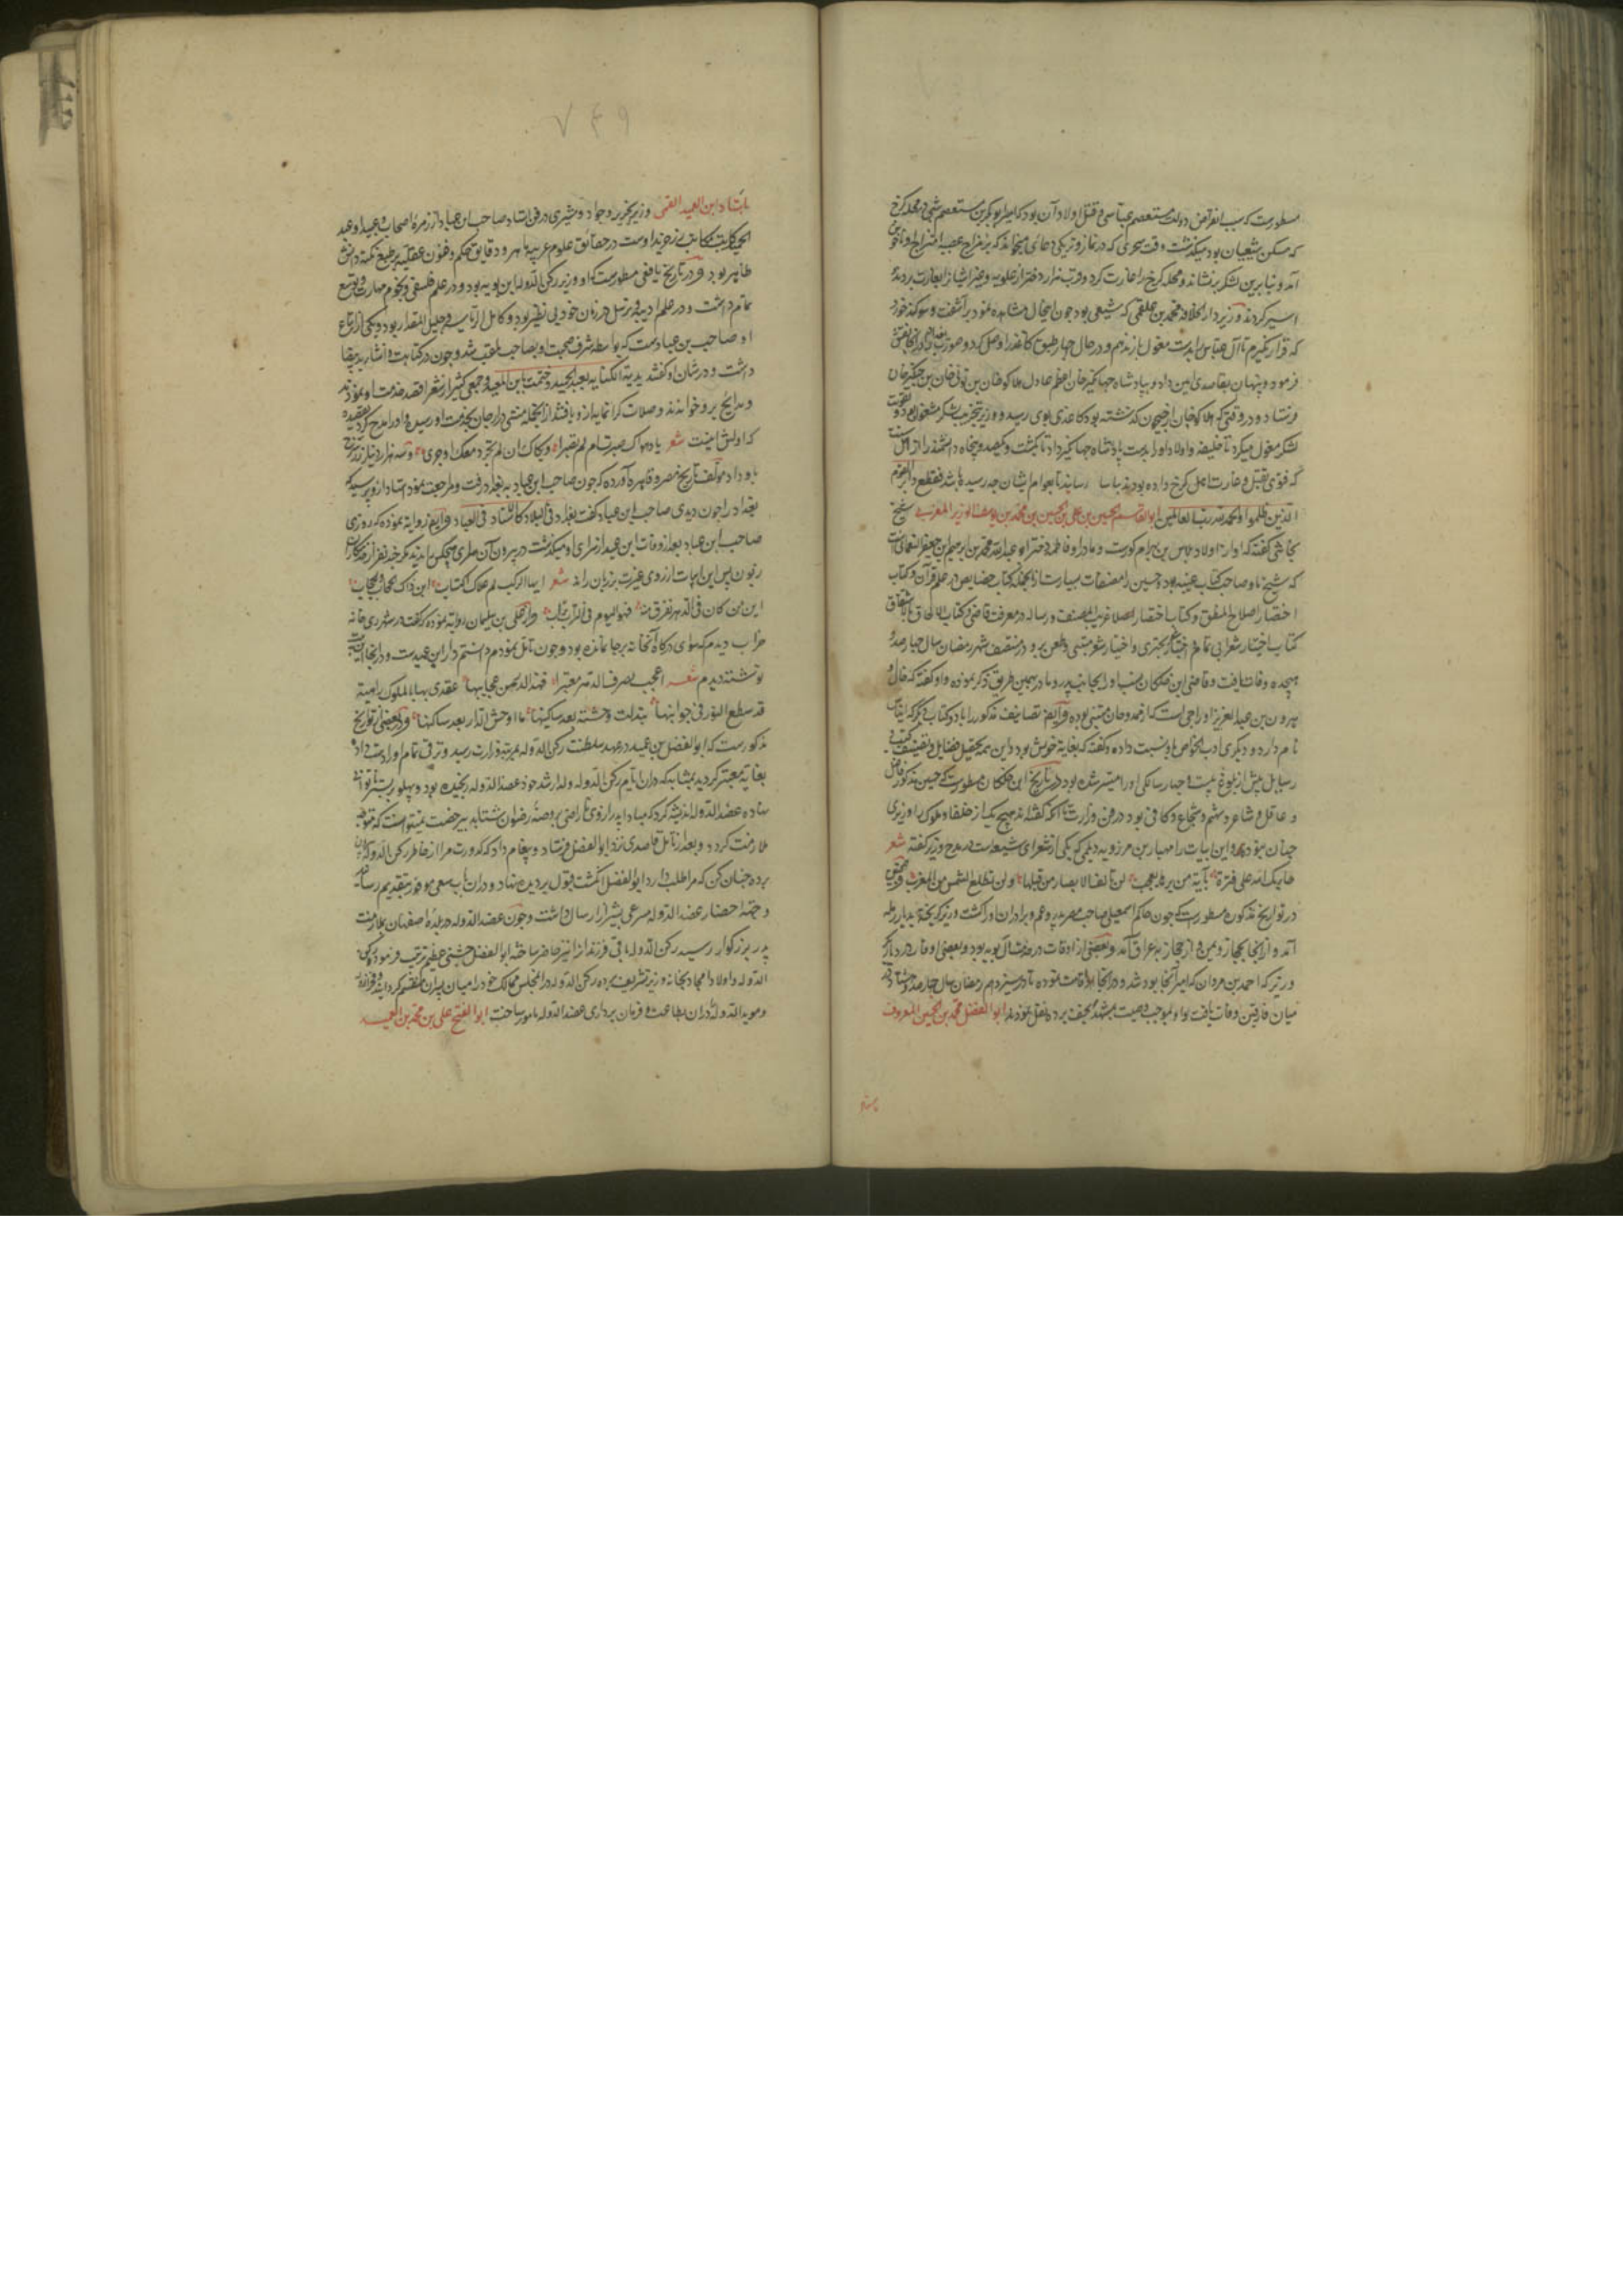 مسطورست که سبب انقراض دولت مستعصم عباسی و قتل اولاد آن بود که امیر ابوبکر بن مستعصم شبی در محله کرخ
که مسکن شیعیان بود میگذشت وقت سحری که در نماز و تریکی دعائی میخواندند که بر مزاج
آمد و بنابرین لشکر برنشاند و محله کرخ را غارت کرد و قرب هزار دختر از علویه و غیر ایشان را بغارت بردند
اسیر کردند و وزیر دار الخلافه محمد بن علقمی که شیعی بود چون این حال مشاهده نمود برآشفت و سوگند خورد
که قرار نگیرم تا آل عباس را بدست مغول باز ندهم و در حال چهار طبق کاغذ را وصل کرد و صورت
فرمود و پنهان بقاصدی امین داد و بپادشاه جهانگیر خان اعظم عادل هلاکو خان بن تولی خان بن چنگیز خان
فرستاد و در وقتی که هلاکو خان از جیحون گذشته بود کاغذ بوی رسید و وزیر
لشکر مغول میکرد تا خلیفه و اولاد او را بدست پادشاه جهانگیر داد تا بکشت و یکصد و پنجاه دانشمند را از اهل سنت
که فتوی بقتل و غارت اهل کرخ داده بودند بیاسا رسانید تا بعوام ایشان چه رسیده باشد فقطع دابر القوم
الذین ظلموا و الحمد لله رب العالمین ابو القاسم الحسین بن علی بن الحسین بن محمد بن یوسف الوزیر المغربی شیخ
نجاشی گفته که او از اولاد بلاس بن بهرام گورست و مادر او فاطمه دختر ابو عبد الله محمد بن ابراهیم بن جعفر النعمانی است
که شیخ ما و صاحب کتاب غیبه بود و حسین را مصنفات بسیارست از آنجمله کتاب خصایص در علم قرآن و کتاب
اختصار اصلاح المنطق و کتاب اختصار غریب المصنف و رساله در معرفت قاضی و کتاب الالحاق بالاشتقاق
کتاب اختیار شعر ابی تمام اختیار شعر بحتری و اختیار شعر متنبی و طعن برو و در منتصف شهر رمضان سال چهارصد و
هیجده وفات یافت و قاضی ابن خلکان نسب او را بجانب پدر و مادر بهمین طریق ذکر نموده و او گفته که خال
هرون بن عبد العزیز اوارجی است که از ممدوحان متنبی بوده و ایضا تصانیف مذکور را با دو کتاب دیگر که ایناس
نام دارد و دیگری ادب الخواص باو نسبت داده و گفته که بغایة خوش بود و این همه تحصیل فضایل و تصنیف کتب و
رسایل پیش از بلوغ بیست و چهار سالگی او را میسر شده بود و در تاریخ ابن خلکان مسطورست که حسین مذکور فاضل
و عاقل و شاعر و متهم و شجاع و کافی بود در فن وزارت تا آنکه گفته اند هیچ یک از خلفا و ملوک را وزیری
چنان نبوده و این ابیات را مهیار بن مرزویه دیلمی که یکی از شعرای شیعه است در مدح وزیر گفته شعر
در تواریخ مذکوره مسطورست که چون حاکم اسمعیلی صاحب مصر پدر و عم و برادران او را کشت وزیر گریخته بدیار رمله
آمد و از آنجا بحجاز و یمن و از حجاز بعراق آمد و بعضی از اوقات در خدمت آل بویه بود و بعضی اوقات در دیار بکر
وزیر که احمد بن مروان که امیر آنجا بود شد و در آنجا اقامت نموده تا در سیزدهم رمضان سال چهارصد و
میان فارقین وفات یافت و او را بموجب وصیت بمشهد نجف برده نقل نمودند ابو الفضل محمد بن الحسین المعروف
باستاد
۷۴۹
باستاد ابن العمید القمی وزیر نحریر و جواد و مشیری در فن استاد صاحب ابن عباد از زمرهٔ اصحاب
ظاهر بود و در تاریخ یافعی مسطورست که او وزیر رکن الدوله ابن بویه بود و در علم فلسفی و نجوم مهارت و توسع
تمام داشت و در علم ادب و ترسل در زمان خود بی نظیر بود و کامل الریاسه و جلیل المقدار بود و یکی از اتباع
او صاحب بن عبادست که بواسطه شرف صحبت او بصاحب ملقب شد و چون در کتابت و انشا ید بیضا
داشت و در شان او گفتند بدیت الکتابه بعبد الحمید و ختمت بابن العمید و جمعی کثیر از شعرا قصد خدمت او نمودند
و مدایح برو خواندند و صلات گرانمایه ازو یافتند از آنجمله متنبی در ارجان بخدمت او رسید و او را مدح کرد بقصیده
که اولش اینست شعر باد هواک صبرت ام لم تصبرا و بکاک ان لم یجر دمعک او جری و سه هزار دینار زر سرخ
باو داد مؤلف تاریخ مصر و قاهره آورده که چون صاحب ابن عباد به بغداد رفت و مراجعت نمود استاد ازو پرسید که
بغداد را چون دیدی صاحب ابن عباد گفت بغداد فی البلاد کالاستاد فی العباد و ایضا روایه نموده که روزی
صاحب ابن عباد بعد از وفات ابن عمید از سرای او میگذشت در بیرون آن سرای هیچکس را ندید مگر چند نفر از خدمتکاران
زبون پس این ابیات از روی عبرت بر زبان راند شعر ایها الرکب لم علاک اکتئاب این ذاک الحجاب و الحجاب
این من کان فی الدهر یفزع منه فهو الیوم فی التراب تراب و از علی بن سلیمان روایه نموده که گفت در شهر ری خانه
خراب دیدم که سوای درگاه آنخانه بر جا نمانده بود و چون تامل نمودم دانستم دار ابن عمیدست و در آنجا
نوشته دیدم شعر اعجب لصرف الدهر معتبرا فهذه الدار من عجایبها عهدی بها بالملوک زاهیة
قد سطع النور فی جوانبها تبدلت وحشة بعد ساکنها ما اوحش الدار بعد ساکنها و در بعضی از تواریخ
مذکورست که ابو الفضل بن عمید در عهد سلطنت رکن الدوله بمرتبه وزارت رسید و ترقی تمام او را دست داده
بغایة معتبر گردید بمثابه که در آن ایام رکن الدوله ولد ارشد خود عضد الدوله رنجیده بود و پهلو بر بستر ناتوانی
نهاده عضد الدوله اندیشه کرد که مبادا پدر از وی ناراضی بروضهٔ رضوان شتابد
ملازمت گردد و بعد از تامل قاصدی نزد ابو الفضل فرستاد و پیغام داد که کدورت مرا از خاطر رکن الدوله
برده چنان کن که مرا طلب دارد ابو الفضل انگشت قبول بر دیده نهاد و در آن باب سعی موفور بتقدیم رسانید
و جهة احضار عضد الدوله مسرعی بشیراز ارسال داشت و چون عضد الدوله در بلدهٔ اصفهان بملازمت
پدر بزرگوار رسید رکن الدوله باقی فرزندانرا نیز حاضر ساخته ابو الفضل جشنی عظیم ترتیب فرمود و رکن
الدوله و اولاد امجاد بخانه وزیر تشریف برده رکن الدوله در آن مجلس ممالک خود را میان پسران منقسم گردانید و فخر الدوله
و موید الدوله را در آن باطاعت و فرمان برداری عضد الدوله مامور ساخت ابو الفتح علی بن محمد بن العمید